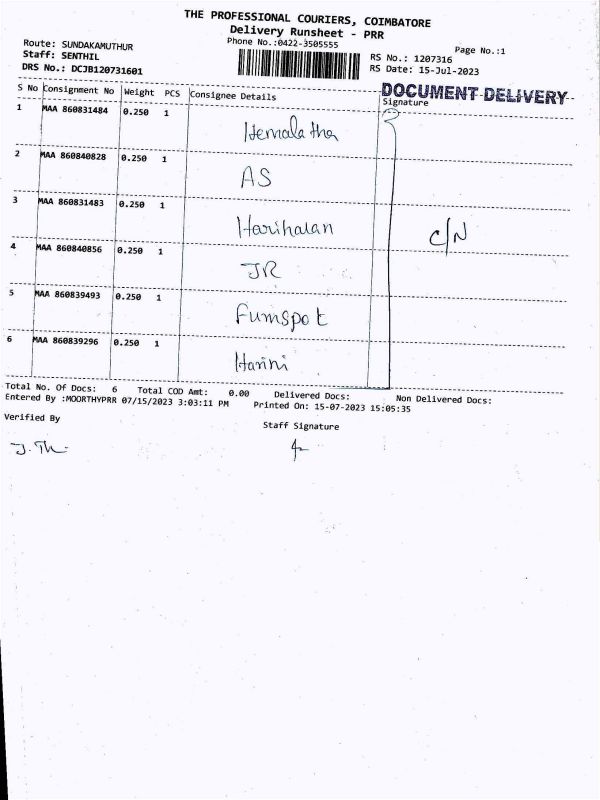 THE PROFESSIONAL COURIERS, COIMBATORE
Delivery Runsheet - PRR
Phone No.:0422-3505555
Page No.:1
Route: SUNDAKAMUTHUR
Staff: SENTHIL
DRS No.: DCJB120731601
RS No.: 1207316
RS Date: 15-Jul-2023
DOCUMENT DELIVERY
S No Consignment No Weight PCS Consignee Details Signature
1 MAA 860831484 0.250 1
Hemalatha
2 MAA 860840828 0.250 1
AS
3 MAA 860831483 0.250 1
Hariharan
C/N
4 MAA 860840856 0.250 1
JR
5 MAA 860839493 0.250 1
Fumspot
6 MAA 860839296 0.250 1
Harini
Total No. Of Docs: 6 Total COD Amt: 0.00 Delivered Docs: Non Delivered Docs:
Entered By :MOORTHYPRR 07/15/2023 3:03:11 PM Printed On: 15-07-2023 15:05:35
Verified By
Staff Signature